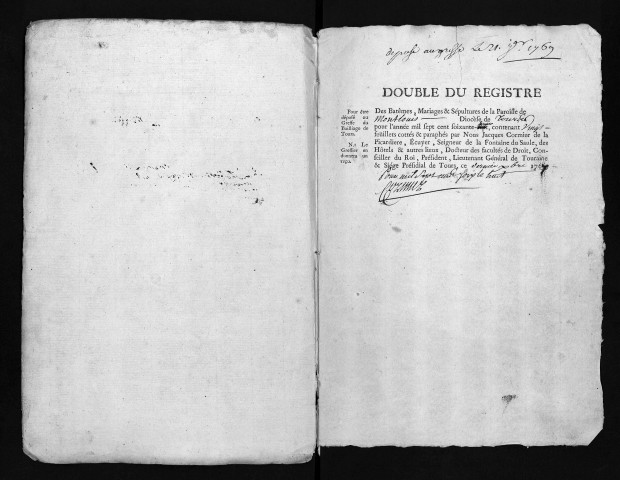 deposé au greffe Le 21. 1769
DOUBLE DU REGISTRE
Pour être
déposé au
Greffe du
Bailliage de
Tours.
N.ª Le
Greffier en
donnera un
reçu.
Des Batêmes, Mariages & Sépultures de la Paroisse de
Montlouis Diocèse de Tours
pour l'année mil sept cent soixante- contenant Vingt
feuillets cottés & paraphés par Nous Jacques Cormier de la
Picardiere, Ecuyer, Seigneur de la Fontaine du Saule, des
Hôtels & autres lieux, Docteur des facultés de Droit, Con-
seiller du Roi, Président, Lieutenant Général de Touraine
& Siége Présidial de Tours, ce 176
Pour mil Sept cent Soix te huit